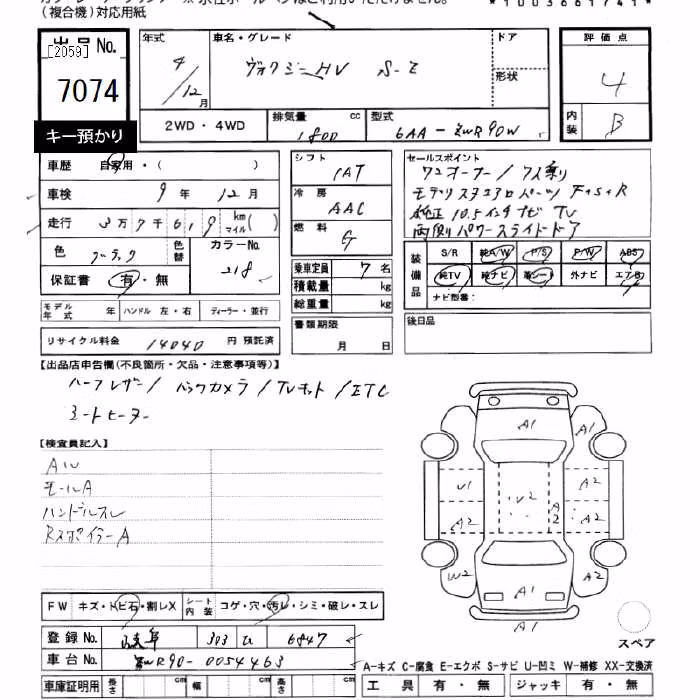 (複合機)対応用紙
*1003661741*
出品 No.
[2059]
7074
キー預かり
年式 車名・グレード ドア 評価点
4/12月 ヴォクシー HV S-Z 形状 4
2WD・4WD 排気量 cc 1800 型式 6AA-ZWR90W 内装 B
車歴 自家用・( )
車検 9年 12月
走行 3万7千619 km マイル( )
色 ブラック 色替 カラーNo. 218
保証書 有・無
シフト 1AT
冷房 AAC
燃料 G
乗車定員 7名
積載量 kg
総重量 kg
書類期限 月 日
セールスポイント
ワンオーナー/7人乗り
モデリスタエアロパーツ F+S+R
純正10.5インチナビ TV
両側パワースライドドア
装備品 S/R 純A/W P/S P/W ABS
純TV 純ナビ 革シート 外ナビ エアB
ナビ型番:
後日品
モデル年式 年 ハンドル 左・右 ディーラー・並行
リサイクル料金 14040 円 預託済
【出品店申告欄(不良箇所・欠品・注意事項等)】
ハーフレザー/バックカメラ/TVキット/ETC
シートヒーター
【検査員記入】
Aル
モールA
ハンドルスレ
RスポイラーA
A1
A1
U1
A2
U2
A2
A2
A2
W2
A2
A1
A1
スペア
FW キズ・トビ石・割レX シート内装 コゲ・穴・汚レ・シミ・破レ・スレ
登録 No. 岐阜 303 に 6847
車台 No. ZWR90-0054463
A-キズ C-腐食 E-エクボ S-サビ U-凹ミ W-補修 XX-交換済
車庫証明用 長さ cm 幅 cm 高さ cm 工具 有・無 ジャッキ 有・無